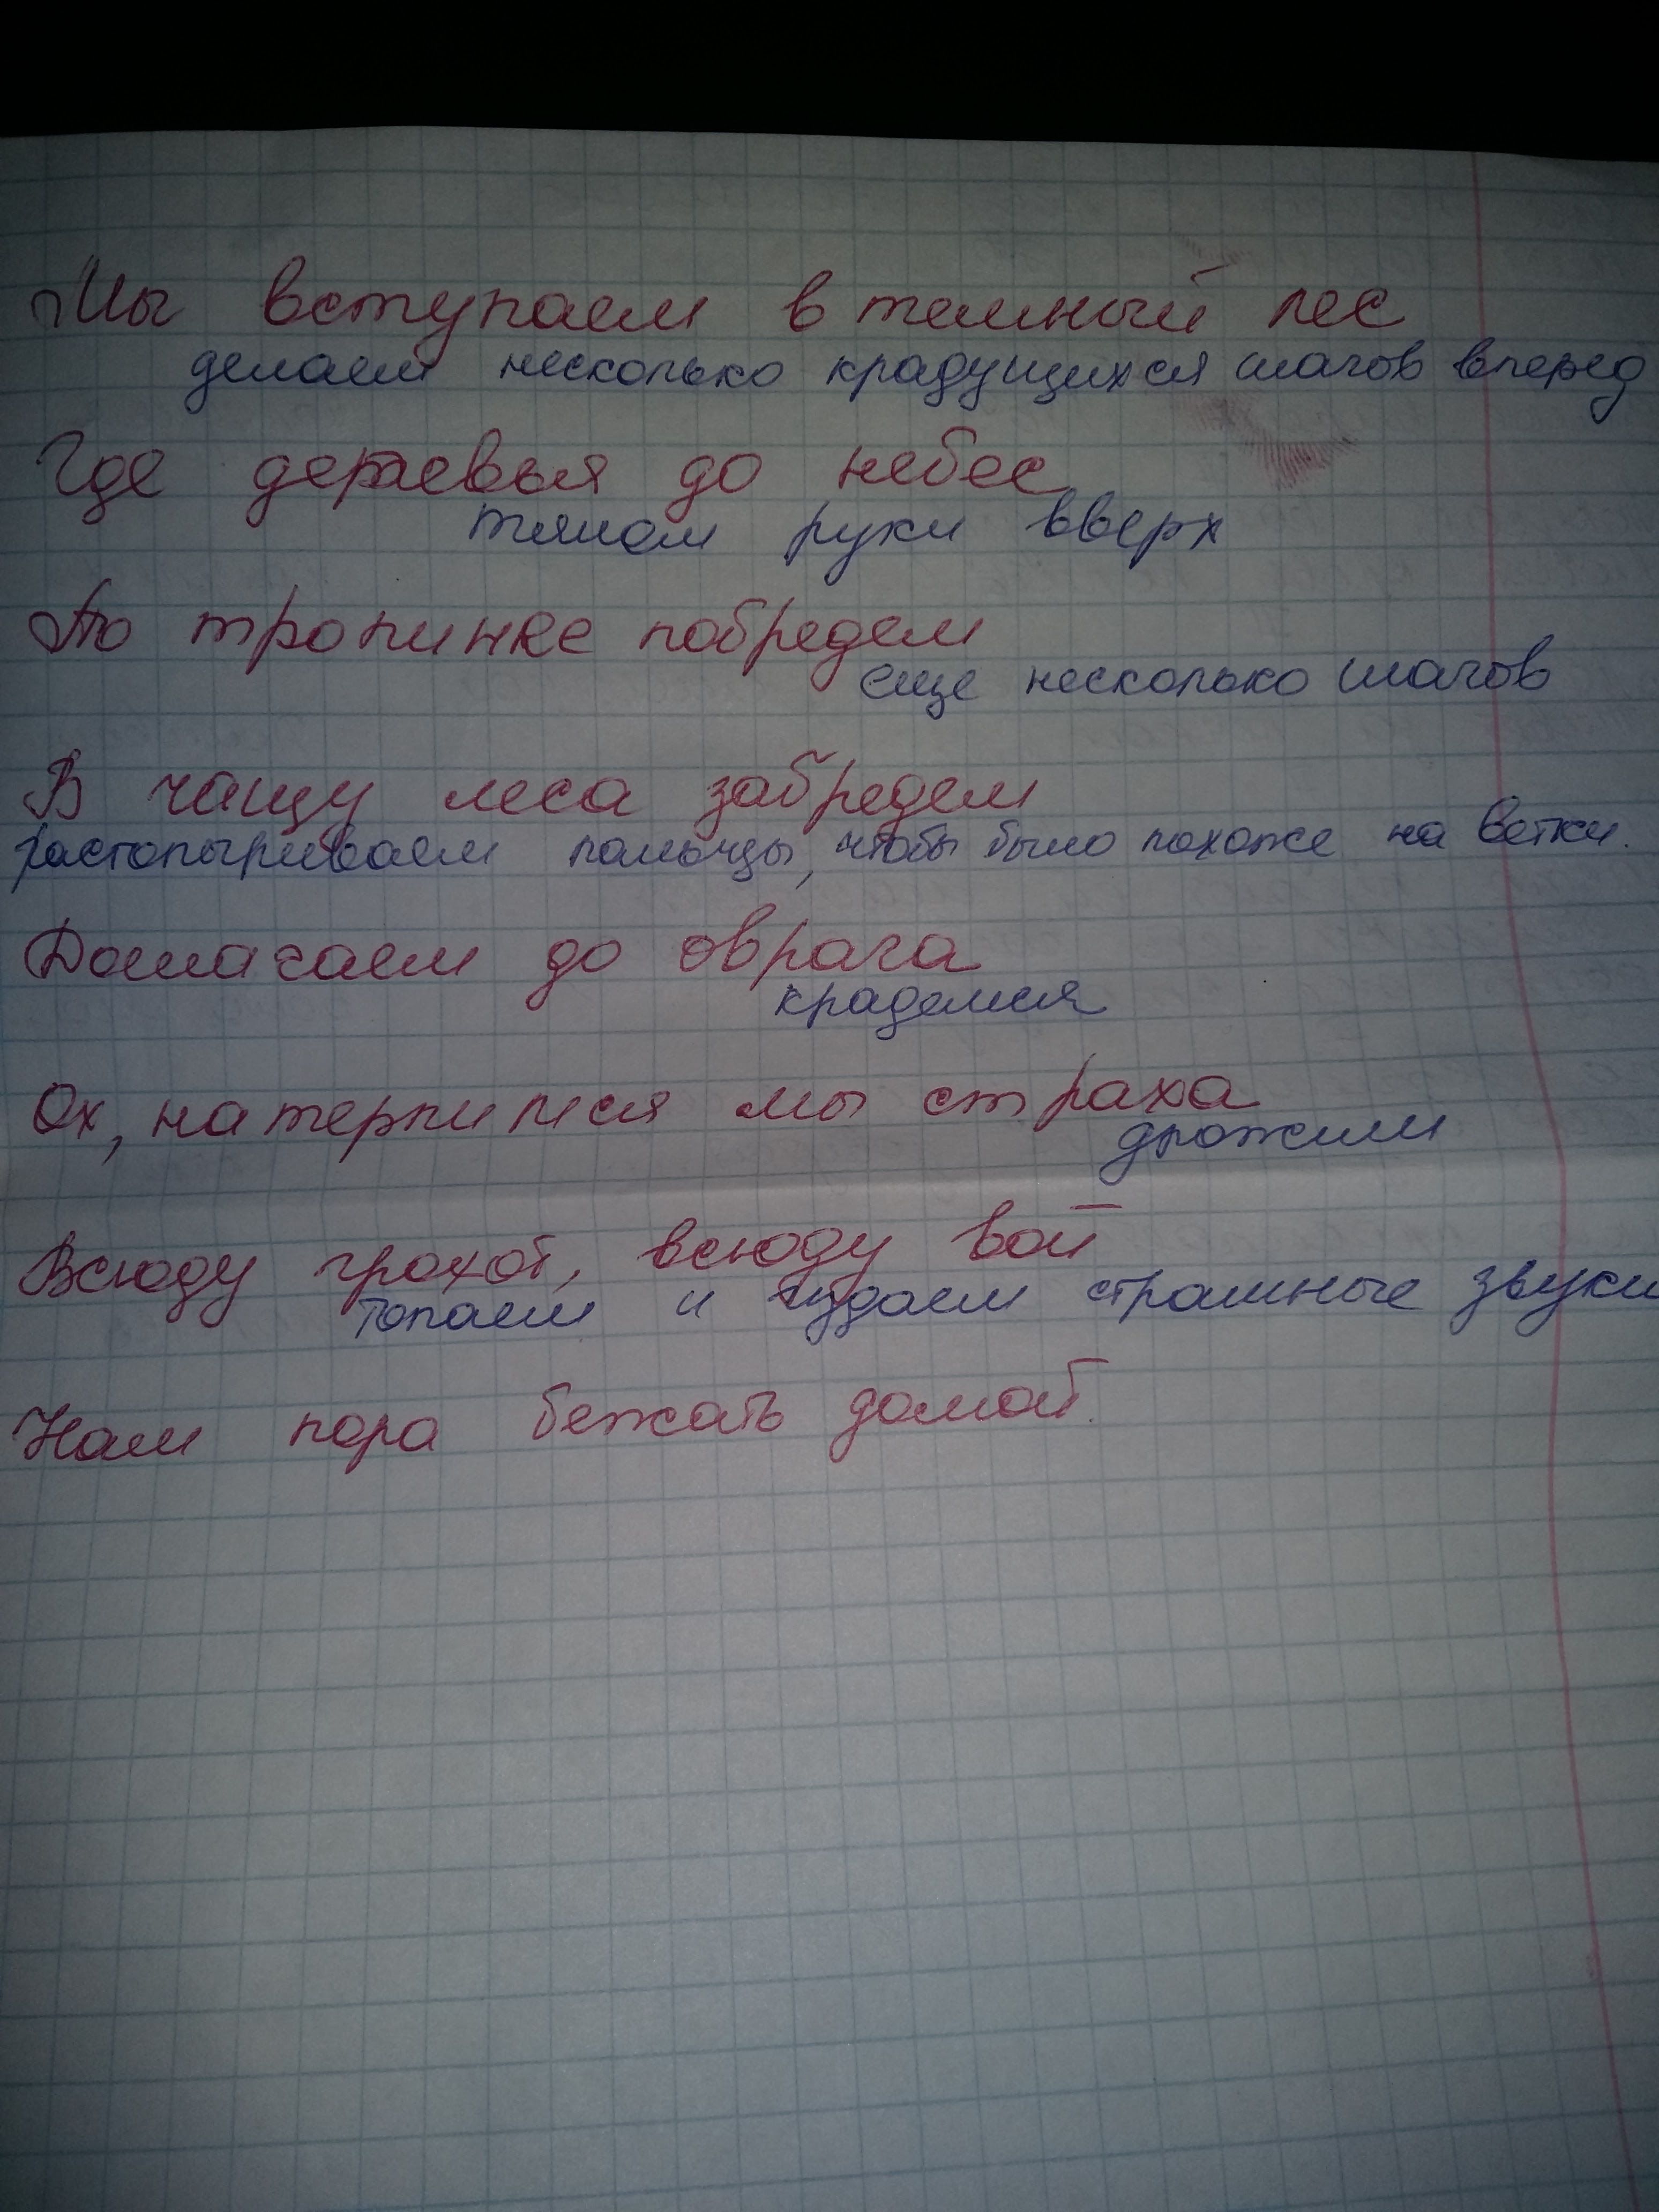 Мы вступаем в темный лес
делаем несколько крадущихся шагов вперед
Где деревья до небес
тянем руки вверх
По тропинке побредем
еще несколько шагов
В чащу леса забредем
растопыриваем пальцы, чтобы было похоже на ветки.
Дошагаем до оврага
крадемся
Ох, натерпимся мы страха
дрожим
Всюду грохот, всюду вой
топаем и издаем страшные звуки
Нам пора бежать домой.